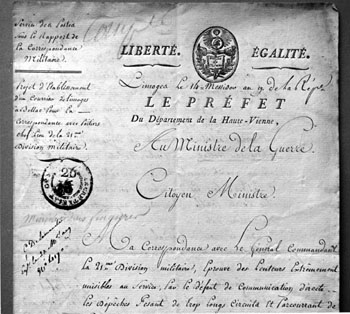 Service des Postes
Sous le Rapport de
la Correspondance
Militaire.
Projet d'Etablissement
d'un Courrier de Limoges
à Bellac pour la
Correspondance avec Poitiers
chef Lieu de la 21me
Division Militaire.
LIBERTÉ. ÉGALITÉ.
Limoges le 14 Messidor an de la Répe
LE PRÉFET
Du Département de la Haute-Vienne,
Au Ministre de la Guerre.
Citoyen Ministre.
Ma Correspondance avec le Général Commandant
la 21me Division militaire, Eprouve des Lenteurs Extrêmement
nuisibles au Service; par le défaut de Communication directe.
les Dépêches faisant de trop longs Circuits et parcourant de